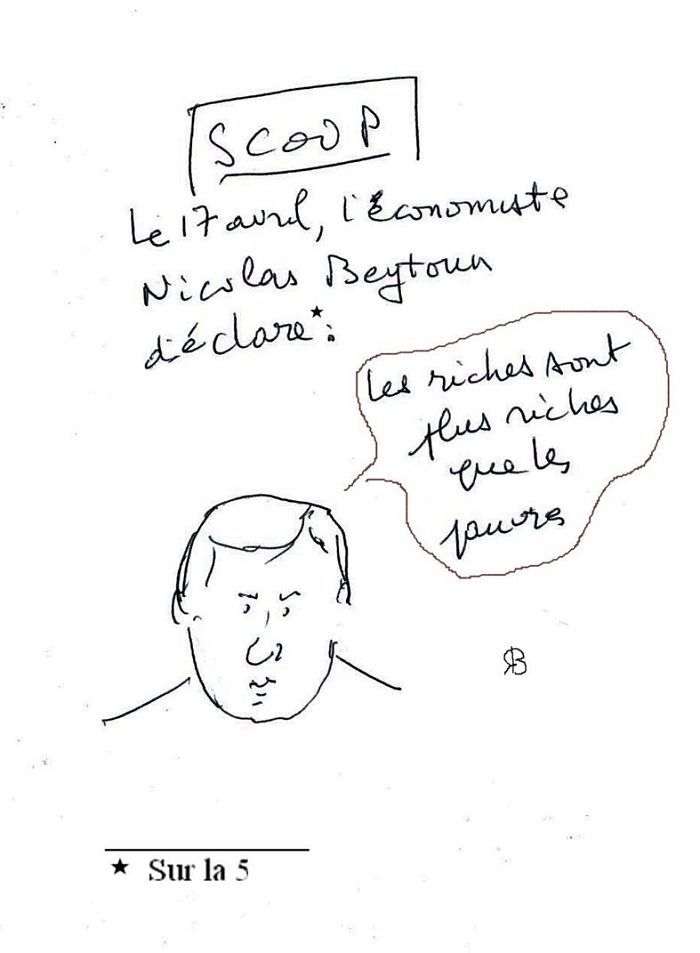 SCOOP
Le 17 avril, l'économiste
Nicolas Beytoun
déclare★:
Les riches sont
plus riches
que les
pauvres
RB
★ Sur la 5